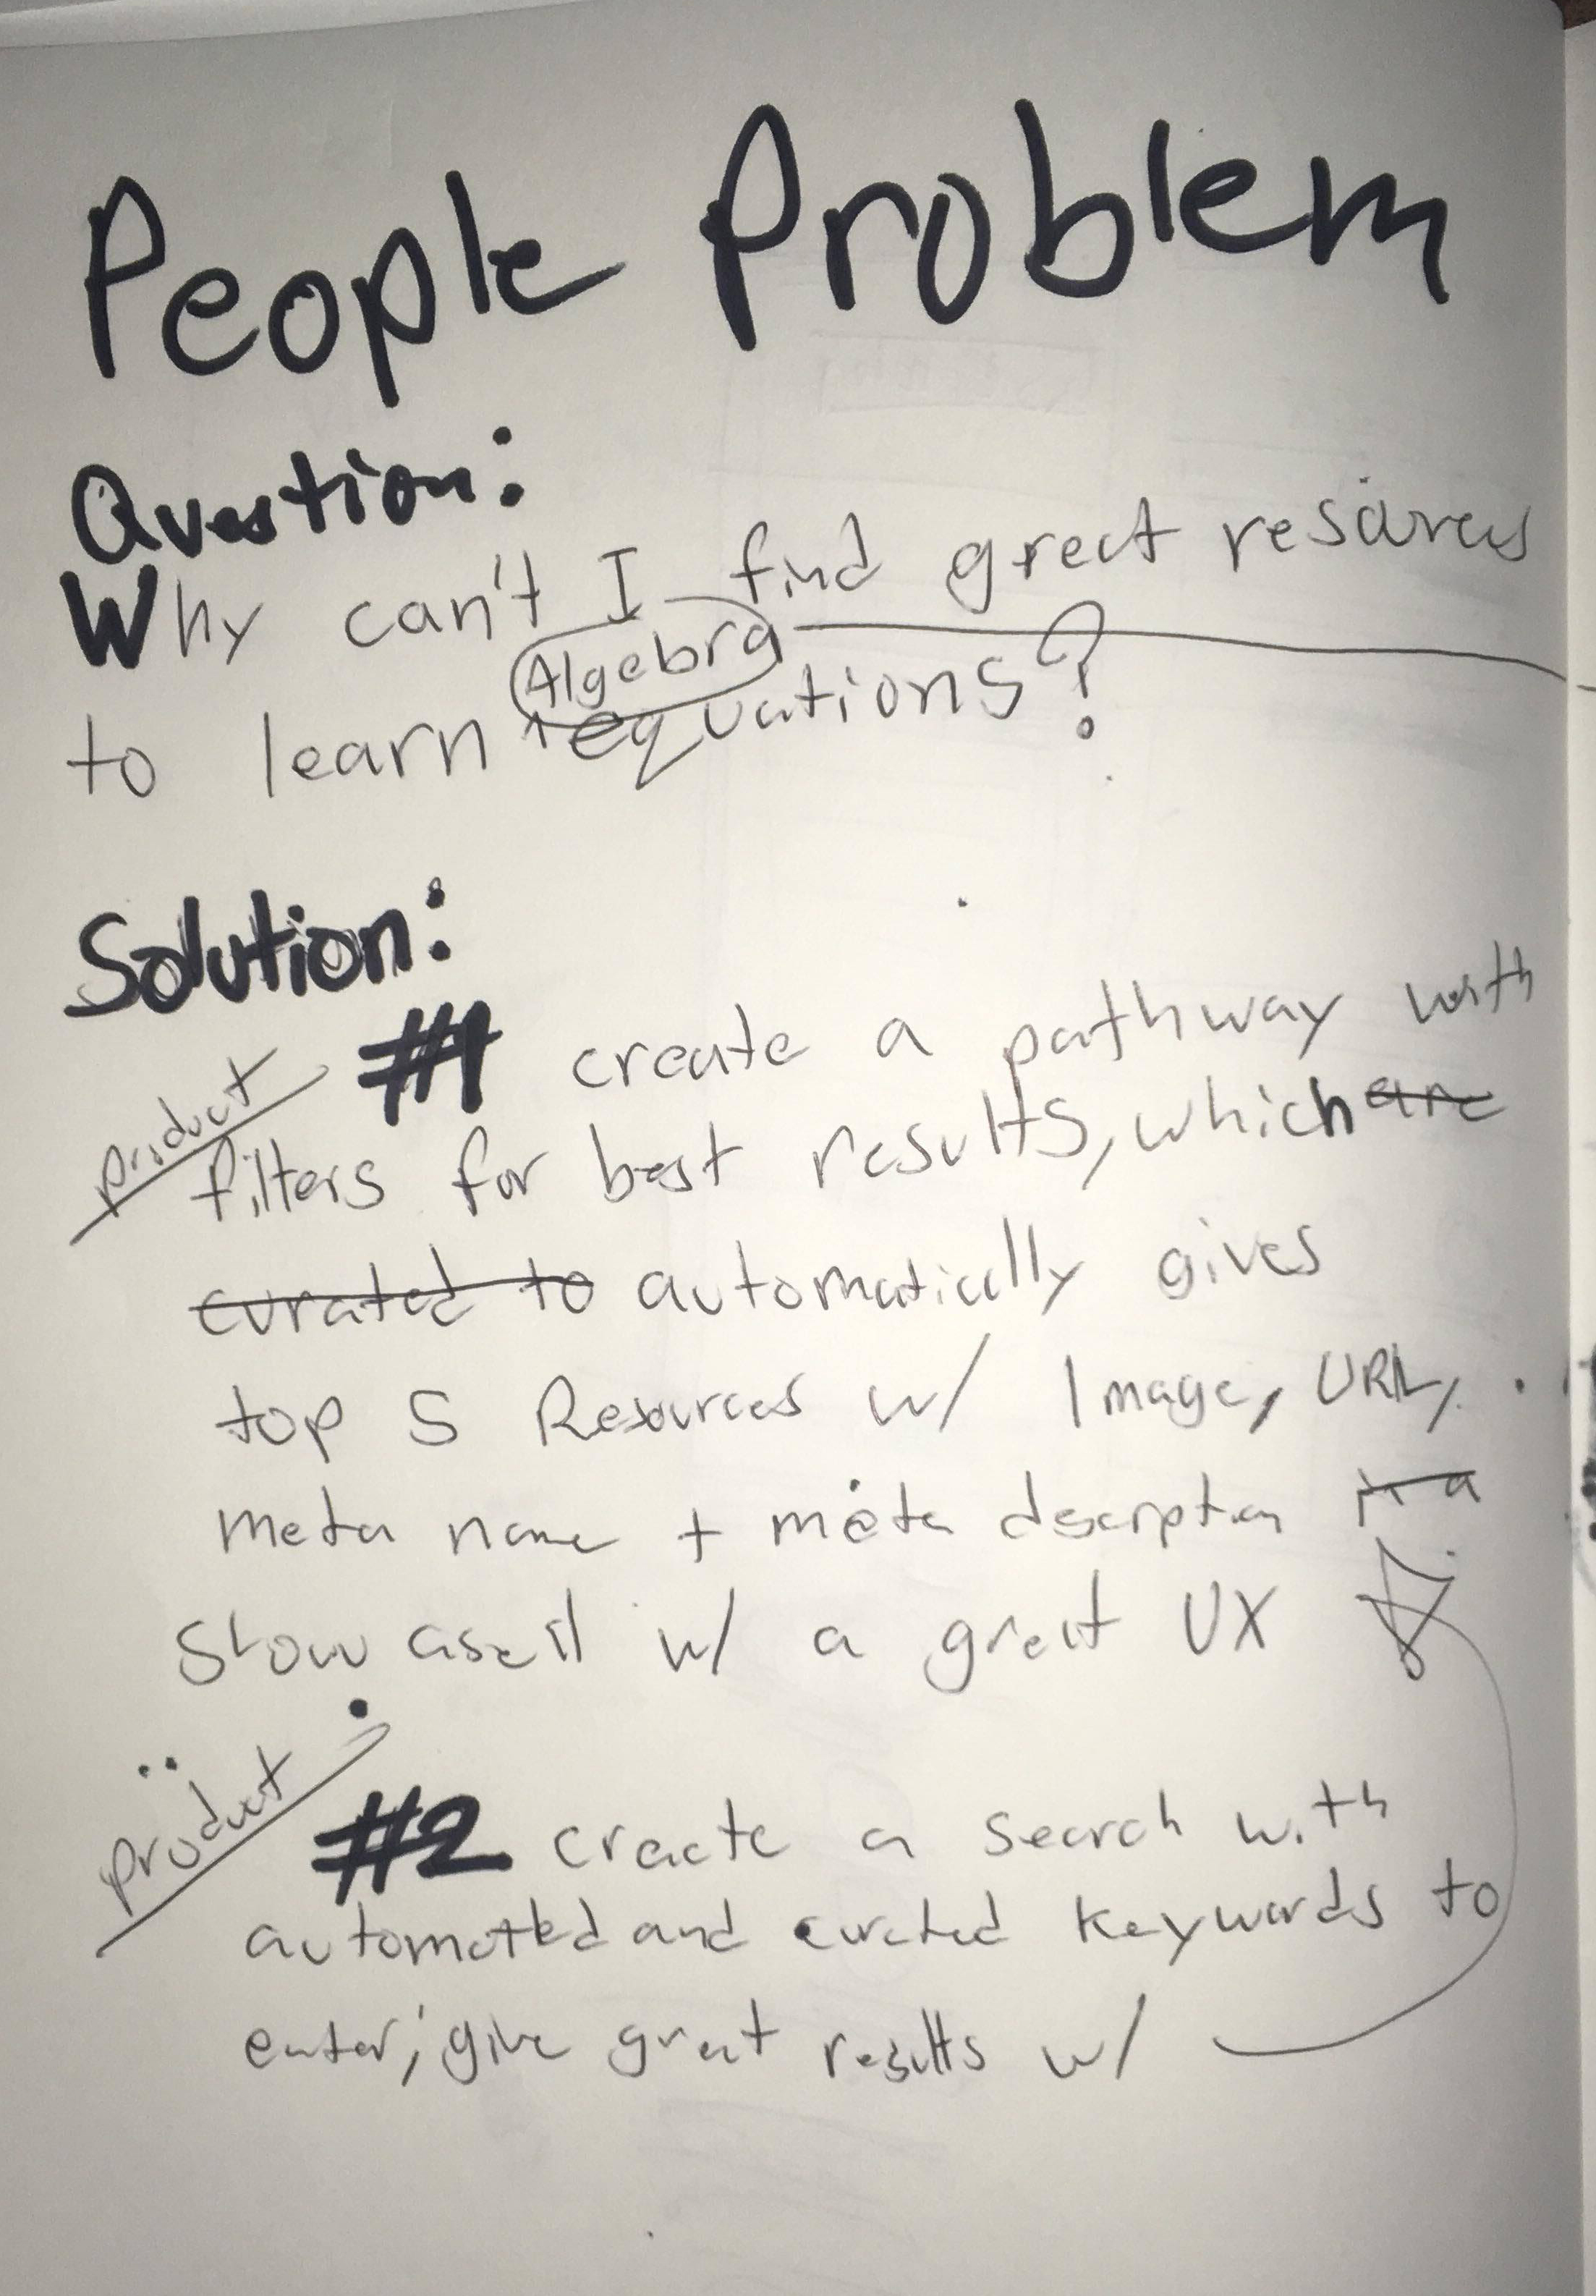 People Problem
Question:
Why can't I find great resources
Algebra
to learn equations?
Solution:
product
#1 create a pathway with
filters for best results, which are
curated to automatically gives
top 5 Resources w/ Image, URL,
meta name + meta description
Show asell w/ a great UX
product
#2 create a search with
automated and curated keywords to
enter, give great results w/